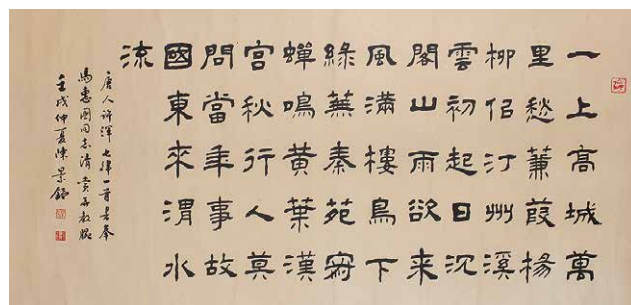 一上高城萬
里愁蒹葭楊
柳佀汀州溪
雲初起日沉
閣山雨欲來
風滿樓鳥下
綠蕪秦苑
蟬鳴黃葉漢
宮秋行人莫
問當年事故
國東來渭水
流
唐人許渾七律一首書奉
馬惠國同志清賞并教
壬戌仲夏陳景舒